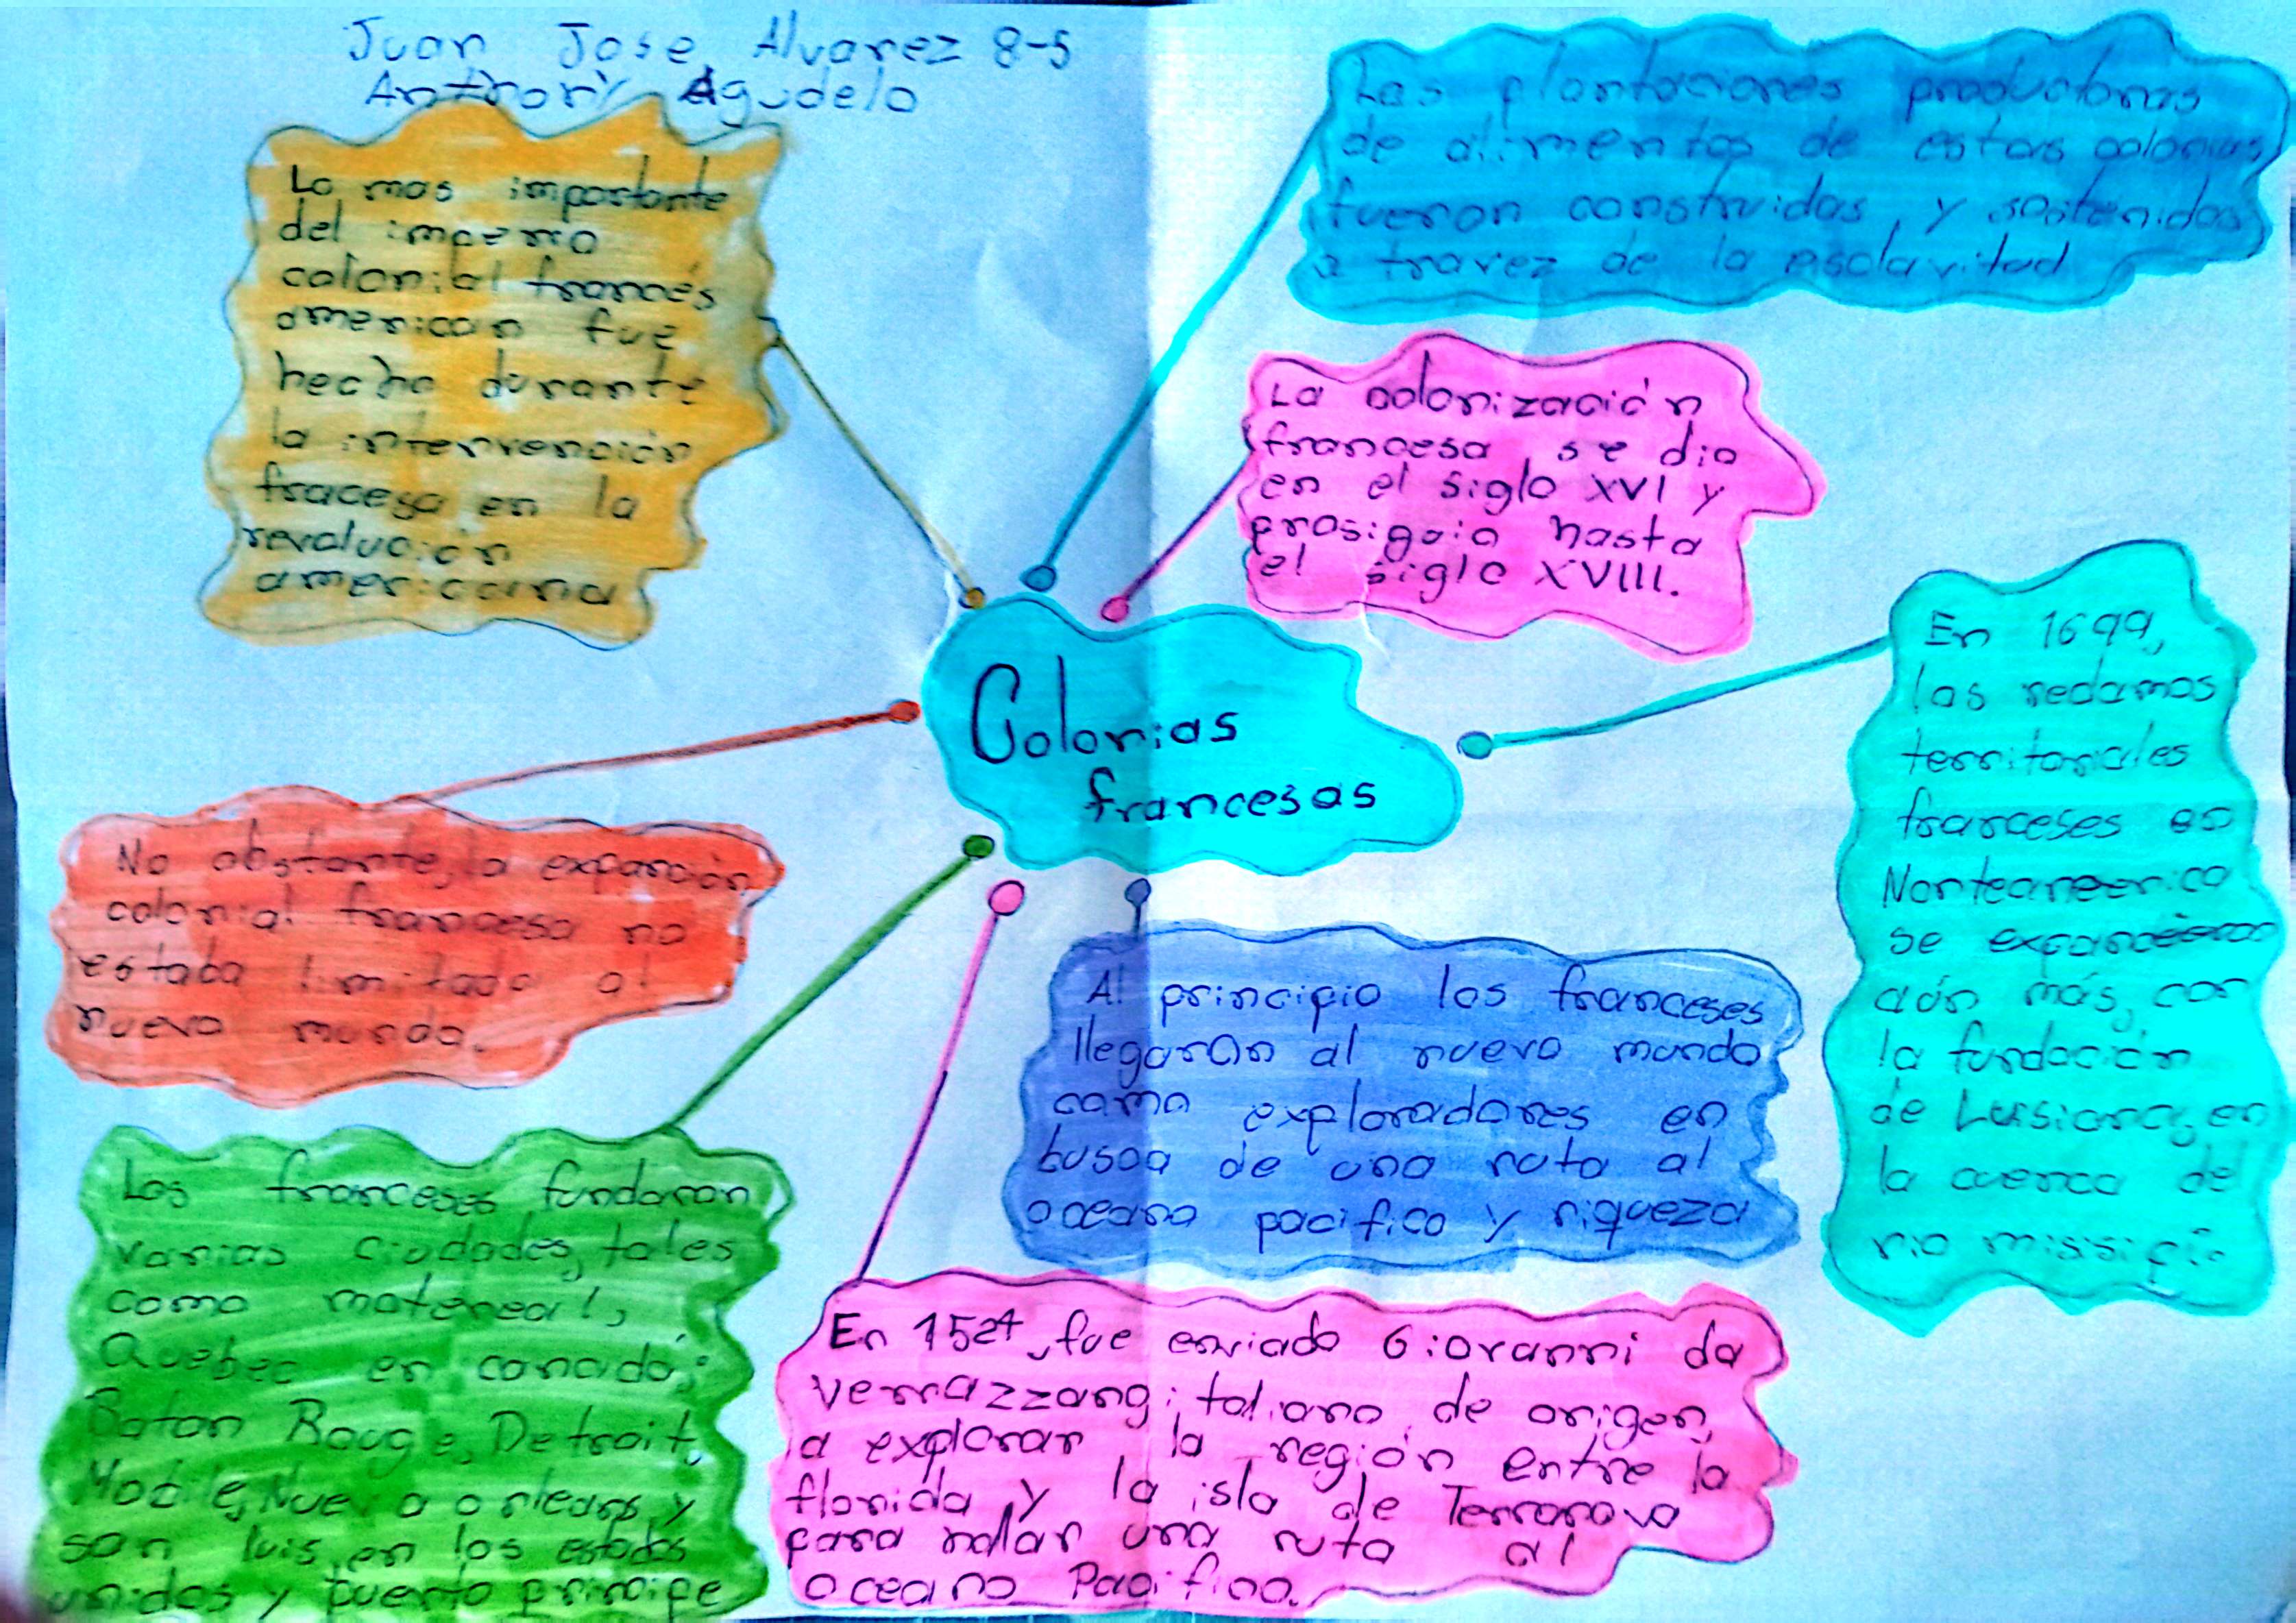 Juan Jose Alvarez 8-5
Anthony Agudelo
Lo mas importante
del imperio
colonial francés
american fue
hecho durante
la intervención
fracesa en la
revolución
americana
Las plantaciones productoras
de alimentos de estas colonias
fueron construidas, y sostenidas
a travez de la esclavitud
La colonización
francesa se dio
en el siglo XVI y
prosiguio hasta
el siglo XVIII.
Colonias
francesas
En 1699,
los reclamos
territoriales
franceses en
se
aún más, con
la fundación
de Luisiana, en
la cuenca del
rio missipi.
No obstante, la expanción
colonial francesa no
estaba limitada al
nuevo mundo.
Al principio los franceses
llegaron al nuevo mundo
como exploradores en
busca de una ruta al
oceano pacifico y riqueza
Los franceses fundaron
varias ciudades, tales
como motereal,
Quebec en canadá;
Baton Rouge, Detroit,
Mobile, Nueva orleans y
san luis, en los estados
unidos y puerto principe
En 1524, fue enviado Giovanni da
Verrazzano, italiano de origen,
a explorar la región entre la
florida y la isla de Terranova
para hallar una ruta al
oceano Pacifico.